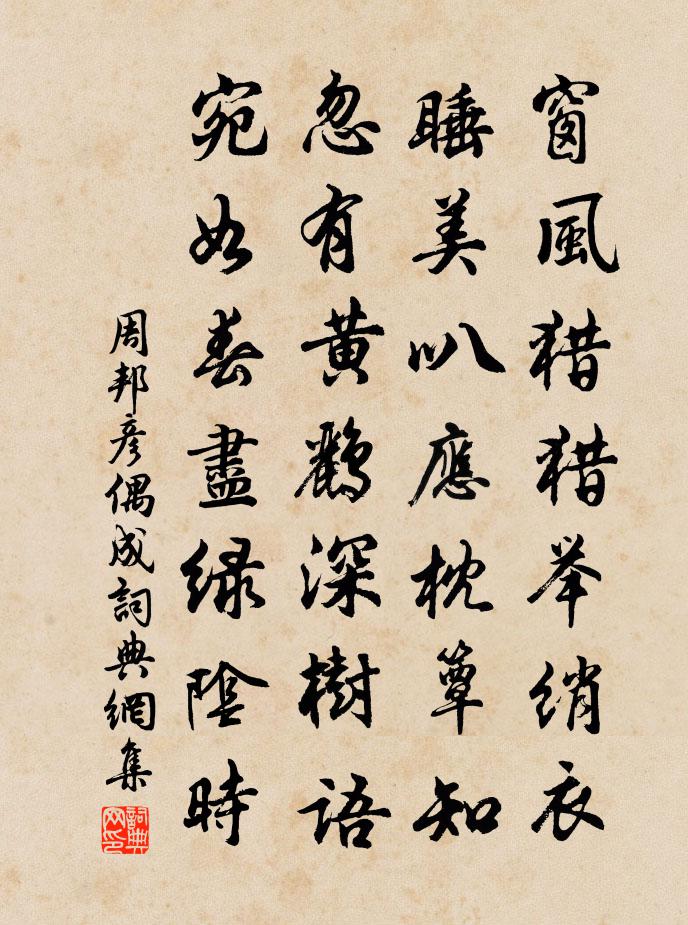 窗風猎猎举绡衣
睡美叭應枕簟知
忽有黄鸝深樹語
宛如春盡绿陰時
周邦彦偶成詞典網集
詞典网印